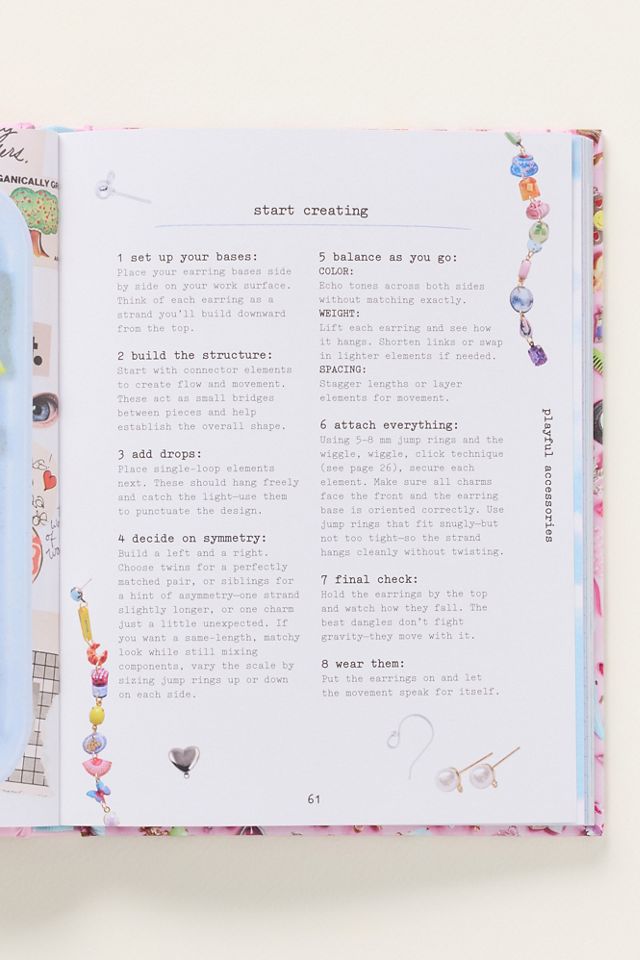 ANICALLY GR
start creating
1 set up your bases:
Place your earring bases side
by side on your work surface.
Think of each earring as a
strand you'll build downward
from the top.
2 build the structure:
Start with connector elements
to create flow and movement.
These act as small bridges
between pieces and help
establish the overall shape.
3 add drops:
Place single-loop elements
next. These should hang freely
and catch the light—use them
to punctuate the design.
4 decide on symmetry:
Build a left and a right.
Choose twins for a perfectly
matched pair, or siblings for
a hint of asymmetry—one strand
slightly longer, or one charm
just a little unexpected. If
you want a same-length, matchy
look while still mixing
components, vary the scale by
sizing jump rings up or down
on each side.
5 balance as you go:
COLOR:
Echo tones across both sides
without matching exactly.
WEIGHT:
Lift each earring and see how
it hangs. Shorten links or swap
in lighter elements if needed.
SPACING:
Stagger lengths or layer
elements for movement.
6 attach everything:
Using 5–8 mm jump rings and the
wiggle, wiggle, click technique
(see page 26), secure each
element. Make sure all charms
face the front and the earring
base is oriented correctly. Use
jump rings that fit snugly—but
not too tight—so the strand
hangs cleanly without twisting.
7 final check:
Hold the earrings by the top
and watch how they fall. The
best dangles don't fight
gravity—they move with it.
8 wear them:
Put the earrings on and let
the movement speak for itself.
playful accessories
61